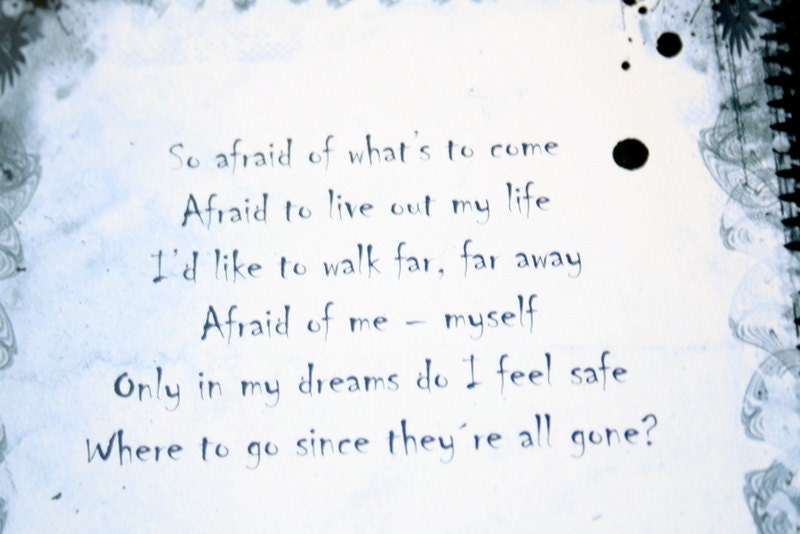 So afraid of what's to come
Afraid to live out my life
I'd like to walk far, far away
Afraid of me – myself
Only in my dreams do I feel safe
Where to go since they´re all gone?